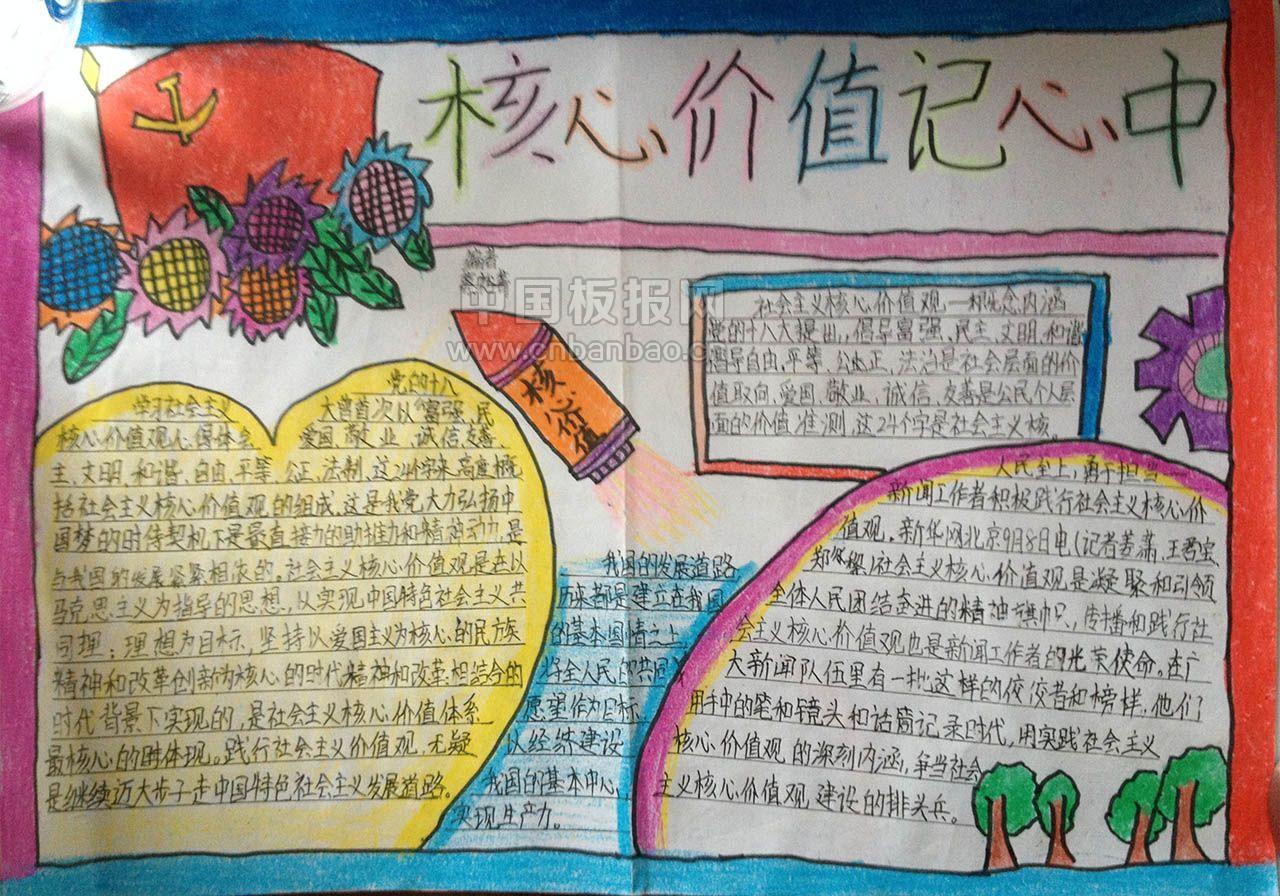 核心价值记心中
编者
中国板报网
www.cnbanbao.c
核心价值
社会主义核心价值观
党的十八大提出,倡导富强、民主、文明、和谐
倡导自由、平等、公正、法治是社会层面的价
值取向,爱国、敬业、诚信、友善是公民个人层
面的价值准测,这24个字是社会主义核。
党的十八
学习社会主义
大首首次以“富强、民
核心价值观心得体会
爱国、敬业、诚信、友善
主、文明、和谐、自由、平等、公正、法制,这24个字来高度概
括社会主义核心价值观的组成,这是我党大力弘扬中
国梦的时待契机下是最直接力的助推力和精神动力,是
与我国的发展紧紧相依的。社会主义核心价值观是在以
马克思主义为指导的思想,从实现中国特色社会主义共
同理:理想为目标,坚持以爱国主义为核心的民族
精神和改革创新为核心的时代精神和改革相结合的
时代背景下实现的,是社会主义核心价值体系
最核心的体现。践行社会主义价值观,无疑
是继续迈大步子走中国特色社会主义发展道路。
我国的发展道路
历来都是建立在我国
的基本国情之上,
将全人民的共同
愿望作为目标
以经济建设
我国的基本中心,
实现生产力。
人民至上,勇于担当
新闻工作者积极践行社会主义核心价
值观。新华网北京9月8日电(记者姜潇、王思
社会主义核心价值观是凝聚和引领
全体人民团结奋进的精神旗帜,传播和践行社
会主义核心价值观也是新闻工作者的光荣使命。在广
大新闻队伍里有一批这样的佼佼者和榜样,他们
用手中的笔和镜头和话筒记录时代,用实践社会主义
核心价值观的深刻内涵,争当社会
主义核心价值观建设的排头兵。